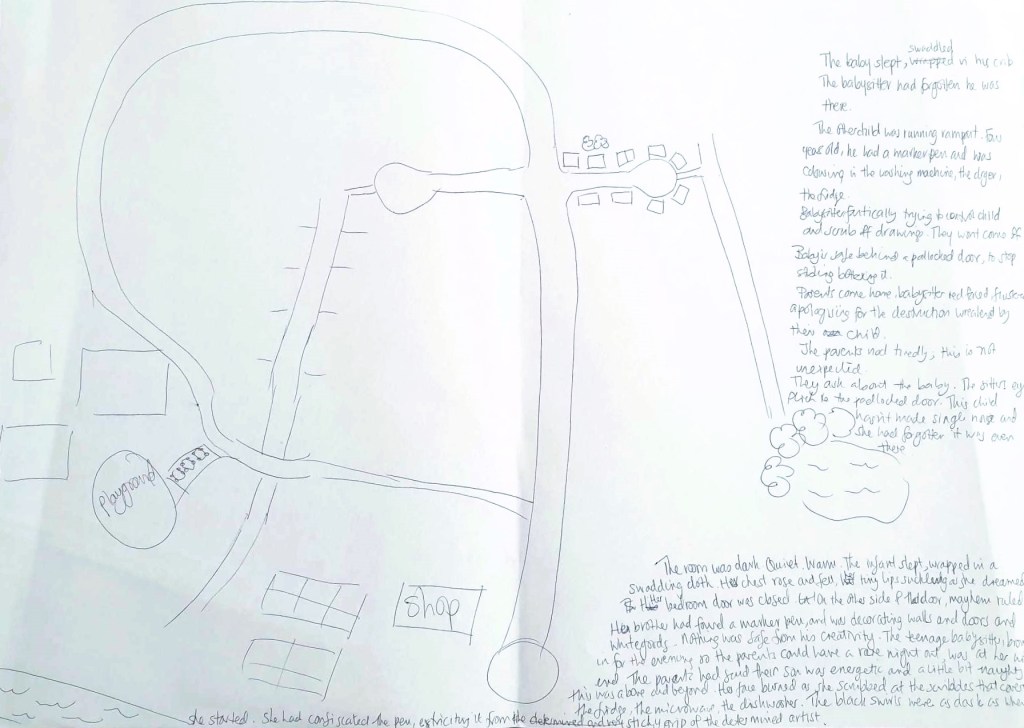 The baby slept, swaddled wrapped in his crib
The babysitter had forgotten he was
there.
The other child was running rampant. Four
years old, he had a marker pen and was
colouring in the washing machine, the dryer,
the fridge.
Babysitter frantically trying to control child
and scrub off drawings. They wont come off
Baby is safe behind a padlocked door, to stop
sibling bothering it.
Parents come home, babysitter red faced,
apologising for the destruction wreaked by
their child.
The parents nod tiredly, this is not
unexpected.
They ask about the baby. The sitters eyes
flick to the padlocked door. This child
hasn't made single noise and
she had forgotten it was even
there
Playground
Shop
The room was dark. Quiet. Warm. The infant slept, wrapped in a
swadding cloth. Her chest rose and fell, tiny lips suckling as she dreamed
Her bedroom door was closed. On the other side of the door, mayhem ruled
Her brother had found a marker pen, and was decorating walls and doors and
whitegoods. Nothing was safe from his creativity. The teenage babysitter,
in for the evening so the parents could have a rare night out, was at her
end. The parents had said their son was energetic and a little bit naughty
this was above and beyond. Her face burned as she scrubbed at the scribbles that
the fridge, the microwave, the dishwasher. The black swirls were as dark as when
she started. She had confiscated the pen, extricating it from the determined and very sticky grip of the determined artist.